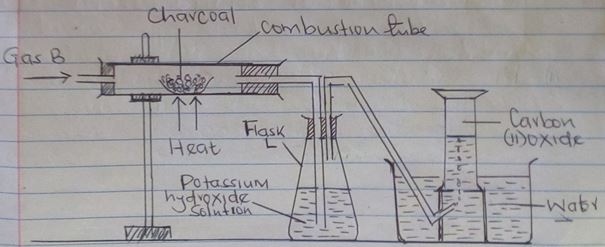 Charcoal
combustion tube
Gas B
Heat
Flask
L
Potassium
hydroxide
solution
Carbon
(II) oxide
Watr